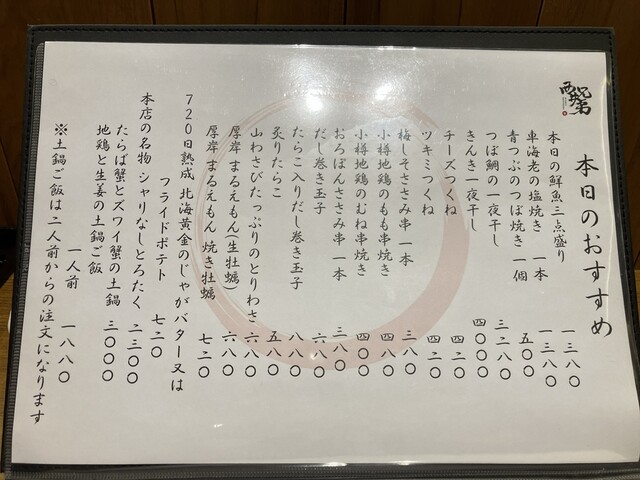 本日のおすすめ
本日の鮮魚三点盛り 一三八〇
車海老の塩焼き 一本 一三八〇
青つぶのつぼ焼き 一個 五〇〇
つぼ鯛の一夜干し 三二八〇
きんき一夜干し 四〇〇〇
チーズつくね 四二〇
ツキミつくね 四二〇
梅しそささみ串 一本 三八〇
小樽地鶏のもも串焼き 四八〇
小樽地鶏のむね串焼き 四〇〇
おろぽんささみ串 一本 三八〇
だし巻き玉子 六八〇
たらこ入りだし巻き玉子 八八〇
炙りたらこ 五八〇
山わさびたっぷりのとりわさ 六八〇
厚岸 まるえもん(生牡蠣) 六八〇
厚岸 まるえもん 焼き牡蠣 七二〇
720日熟成 北海黄金のじゃがバター又は
フライドポテト 七二〇
本店の名物 シャリなしとろたく 二三〇〇
たらば蟹とズワイ蟹の土鍋 三〇〇〇
地鶏と生姜の土鍋ご飯
一人前 一八八〇
※土鍋ご飯は二人前からの注文になります